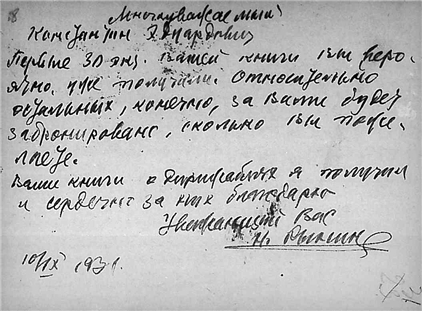 Многоуважаемый
Константин Эдуардович
Первые 30 экз. Вашей книги Вы веро-
ятно, уже получили. Относительно
остальных, конечно, за Вами будет
забронировано, сколько Вы поже-
лаете.
Ваши книги о дирижаблях я получил
и сердечно за них благодарю
Уважающий Вас
Н. Рынин
10/IX 193